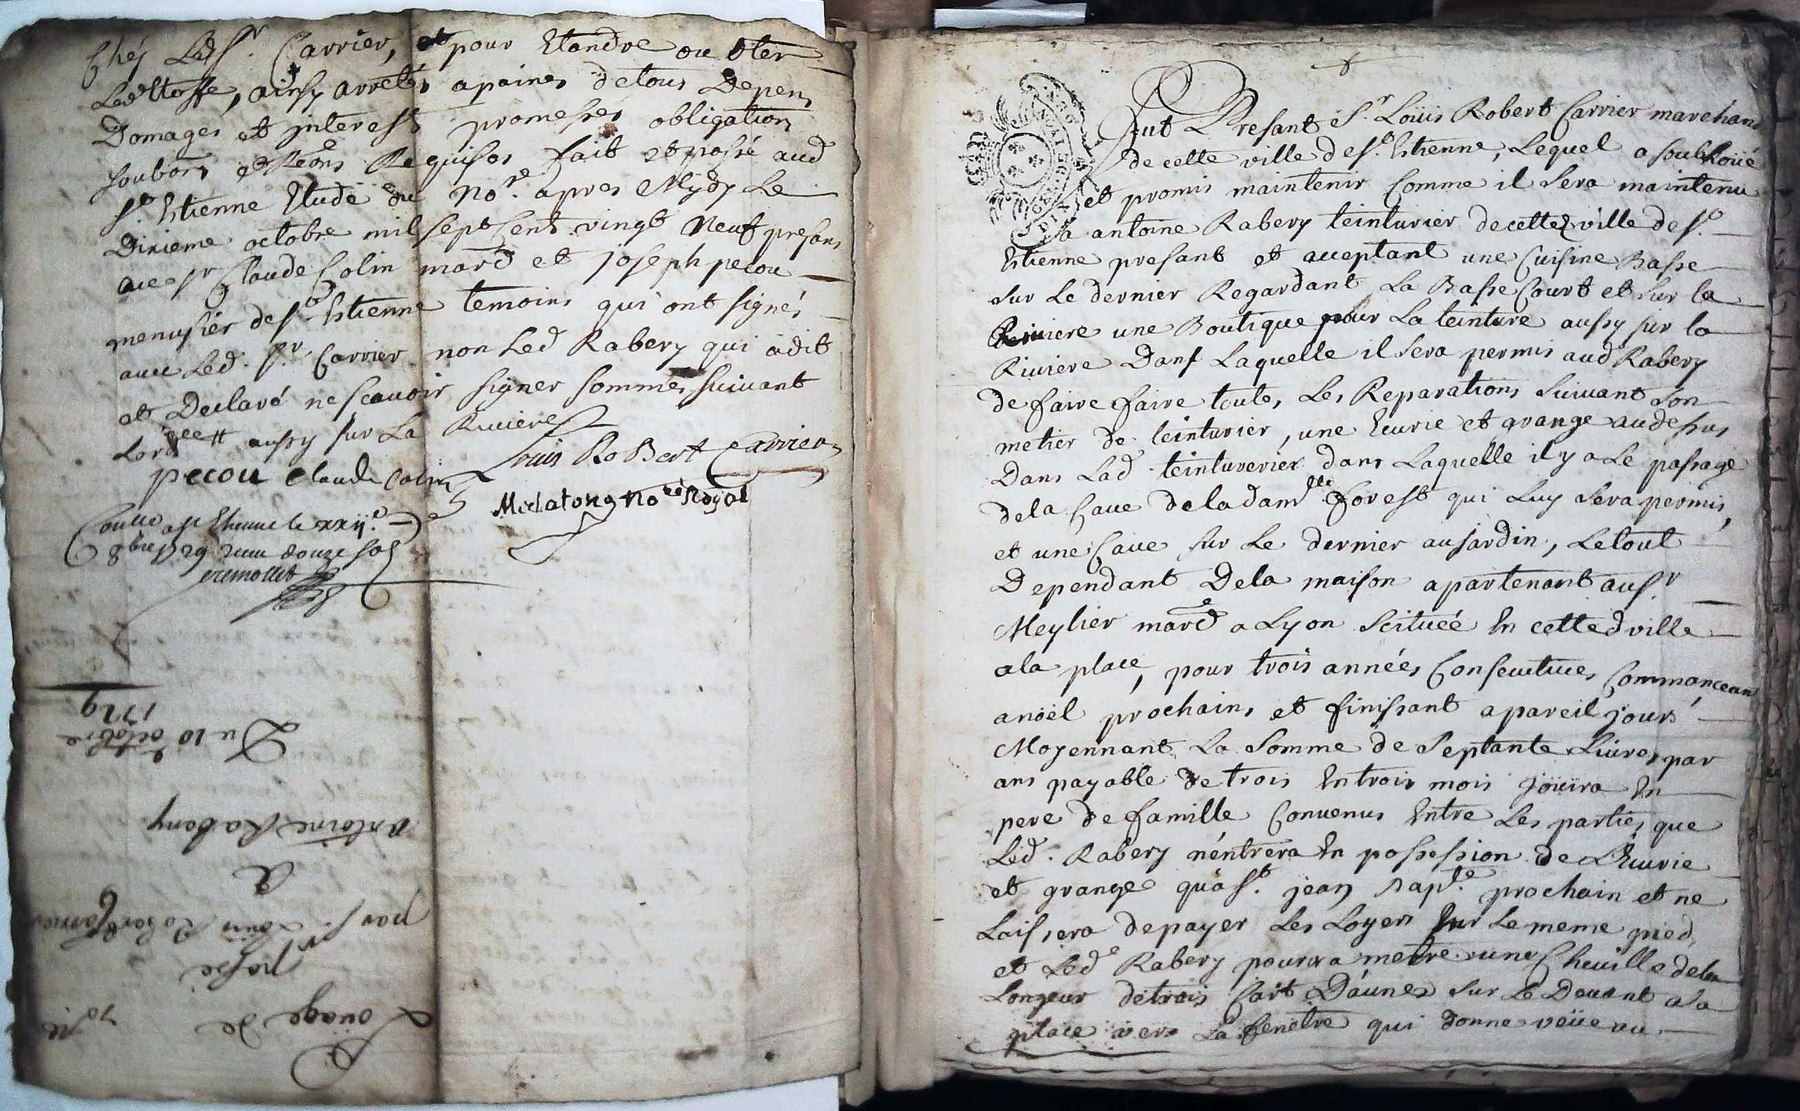 Chéz Led Sr. Carrier, pour Etandre ou oter
Led Etoffe, ainsy arretés a paines de tous Depens
Domages et interests promesses obligation
soubons et Reons Requises fait et passé aud
St. Estienne Etude du Nore. apres Mydy Le
Dixieme octobre mil sept Cent vingt Neuf presans
avec sr Claude Colin mard et Joseph pecou
menusier de St. Estienne temoins qui ont signés
avec Led. sr. Carrier non Led Rabery qui a dit
et Declaré ne scavoir signer sommés suivant
Lordce aussy sur La Riviere
Louis RoBert Carrier
pecou Claude Colin
Notre Royal
a St Etienne le xxije.
8bre 1729 douze sols
fut Presant Sr. Loüis Robert Carrier marchand
de cette ville de St. Estienne, Lequel a soubloüé
et promis maintenir Comme il sera maintenu
a antoine Rabery teinturier de cetted ville de St.
Estienne presant et acceptant une Cuisine Basse
sur Le dernier Regardant La Basse Court et sur la
Riviere une Boutique pour La teinture aussy sur la
Riviere Dans Laquelle il sera permis aud Rabery
de faire faire toutes Les Reparations suivant son
metier de teinturier, une Ecurie et grange au dessus
Dans Lad. teinturerier dans Laquelle il y a Le passage
de la Cave de la damlle forest qui Luy sera permis,
et une Cave sur Le dernier au jardin, Le tout
Dependant De la maison apartenant au sr.
Meylier mard a Lyon scituée En cetted ville
a la place, pour trois années Consecutives Commanceant
a noël prochains et finissant a pareil jour
Moyennant La somme de septante Livres par
ans payable de trois En trois mois joüira En
pere de famille Convenus Entre Les parties que
Led. Rabery n'entrera En possession de L'Ecurie
et grange qu'a St. jean Bapte. prochain et ne
Laissera de payer Les Loyers sur Le meme pied
et Led Rabery pourra metre une Cheville de la
Longeur de trois Cart D'aunes sur Le Devant a la
place vers La fenetre qui donne veüe au
Louage de 70 lt
passé
par sr. Louis Robert Carrier
A
antoine Rabery
Du 10 octobre
1729